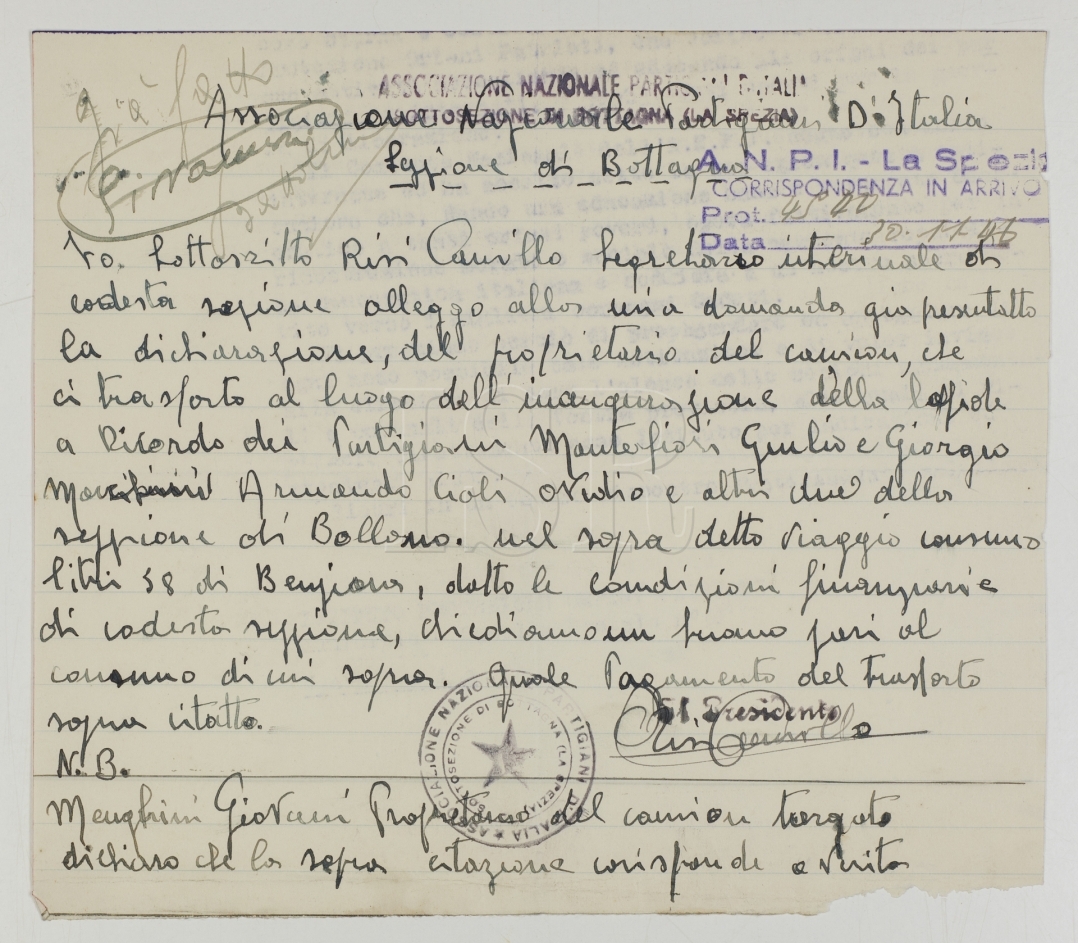 già fatto
ASSOCIAZIONE NAZIONALE PARTIGIANI D'ITALIA
SOTTOSEZIONE DI BOTTAGNA (LA SPEZIA)
Associazione Nazionale Partigiani D'Italia
Seppione di Bottagna
A. N. P. I. - La Spezia
CORRISPONDENZA IN ARRIVO
Prot. 4520
Data 30.11.46
Io. Sottoscritto Risi Camillo Segretario interinale di
codesta sezione alleggo alla mia domanda gia presentatto
la dichiarazione, del proprietario del camion, che
ci trasporto al luogo dell'inaugurazione della lapide
a Ricordo dei Partigiani Montefiori Giulio e Giorgio
Armando Cioli Ovidio e altri due della
seppione di Bollano. nel sopra detto viaggio consumo
litri 38 di Benzina, datto le condizioni finanziarie
di codesta seppione, chiediamo un buono pari al
consumo di cui sopra. quale Pagamento del trasporto
sopra citatto.
Il Presidente
Risi Camillo
ASSOCIAZIONE NAZIONALE PARTIGIANI D'ITALIA
SOTTOSEZIONE DI BOTTAGNA (LA SPEZIA)
N.B.
Menghini Giovani Proprietario del camion targato
dichiaro che la sopra citazione corisponde a verita
ISR